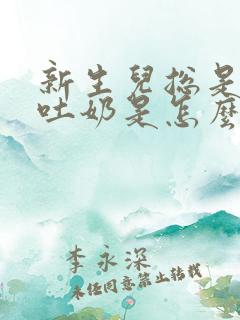 新生兒總是
吐奶是怎麼
李永深
未经同意禁止转载